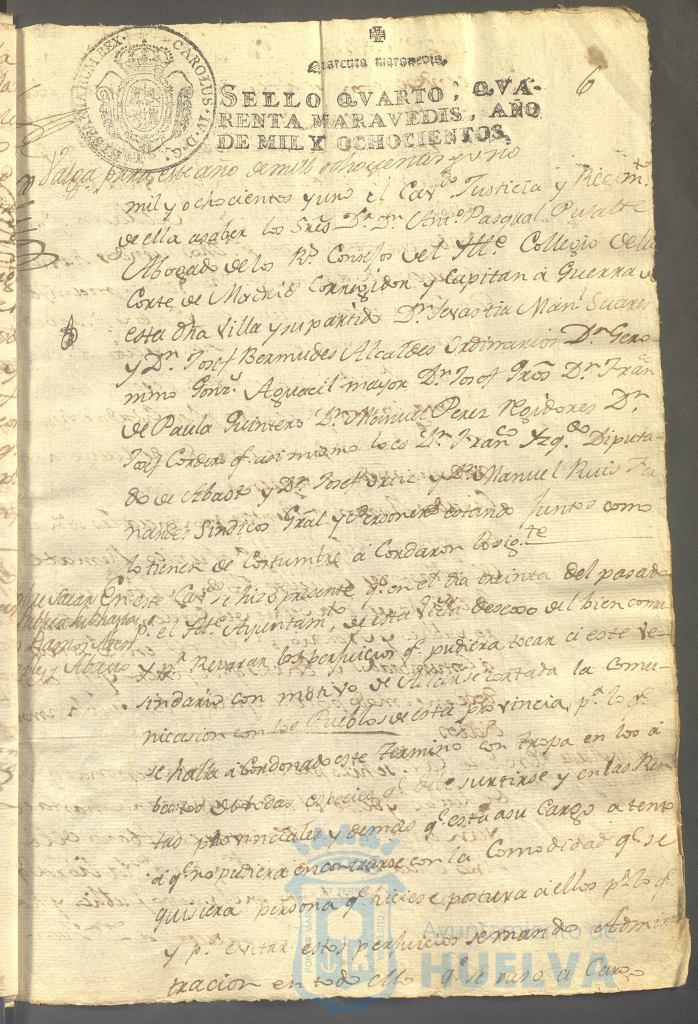 Quarenta maravedis.
6
CAROLUS IV D G HISPANIARUM REX
SELLO QVARTO, QVA-
RENTA MARAVEDIS, AÑO
DE MIL Y OCHOCIENTOS,
Valga para este año de mil ochocientos y uno
mil y ochocientos y uno el Cavdo Justicia y Regimto
de ella asaber los Sres Dr Dn Anto Pasqual
Abogado de los Rs Consejos del Ille Collegio de la
Corte de Madrid Corregidor y Capitan a Guerra de
esta dha Villa y su partido Dn Sevastian Manl Suares
y Dn Josef Bermudes Alcaldes Ordinarios Dn Gero
nimo Gonzs Aguacil mayor Dn Josef Dn Fran
de Paula Quintero Dn Manuel Perez Regidores Dn
Josef Cordero qe asi mismo lo es Dn Franco Izqdo Diputa
do de Abasto y Dn Josef y Dn Manuel Ruis Fer
nandes Sindico Gral y Personero estando Juntos como
lo tienen de Costumbre acordaron lo sigte
En este Cavdo se hizo presente qe en el dia treinta del pasado
pr el Ille Ayuntamto de esta Villa deseoso del bien comun
y pa Reparar los perjuicios qe pudiera tocar a este Ve
sindario con motivo de allarse cortada la Comu
nicasion con los Pueblos de esta provincia pa lo qe
se halla acordonado este Termino con tropa en los a
bastos de todas especies qe debe surtirse y en las Ren
tas provinciales y demas qe esta a su Cargo atento
a qe no pudiera encontrarse con la Comodidad qe se
quisiera persona qe hiciese postura a ellos pr lo qe
y pa evitar estos perjuicios se mando Adminis
tracion en todo ello qe se puso a Cargo
Sobre sacar
Ayuntamiento de
HUELVA